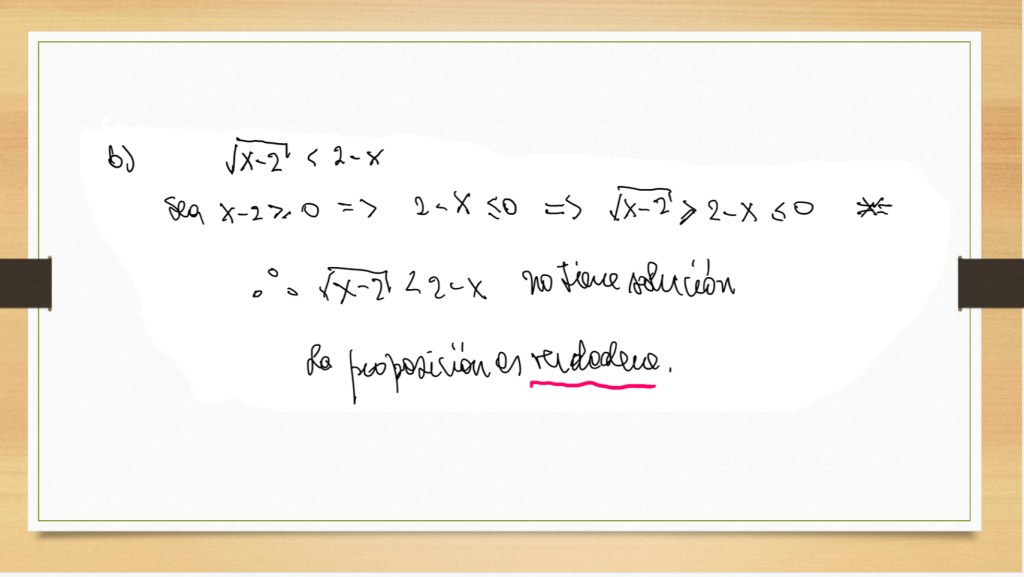 b) √x-2 < 2-x
Sea x-2 ≥ 0 => 2-x ≤ 0 => √x-2 ≥ 2-x ≤ 0 ※
∴ √x-2 < 2-x no tiene solución
La proposición es verdadera.